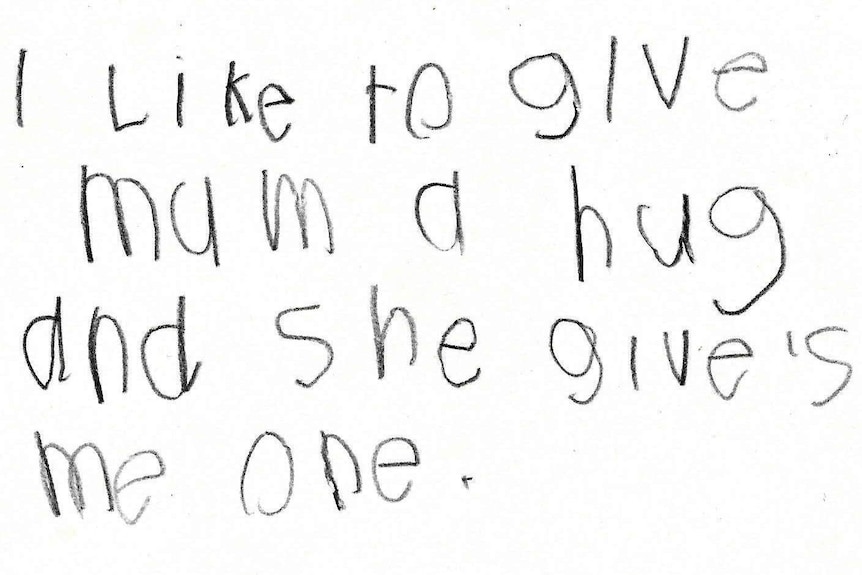 I Like to give
mum a hug
and she give's
me one.